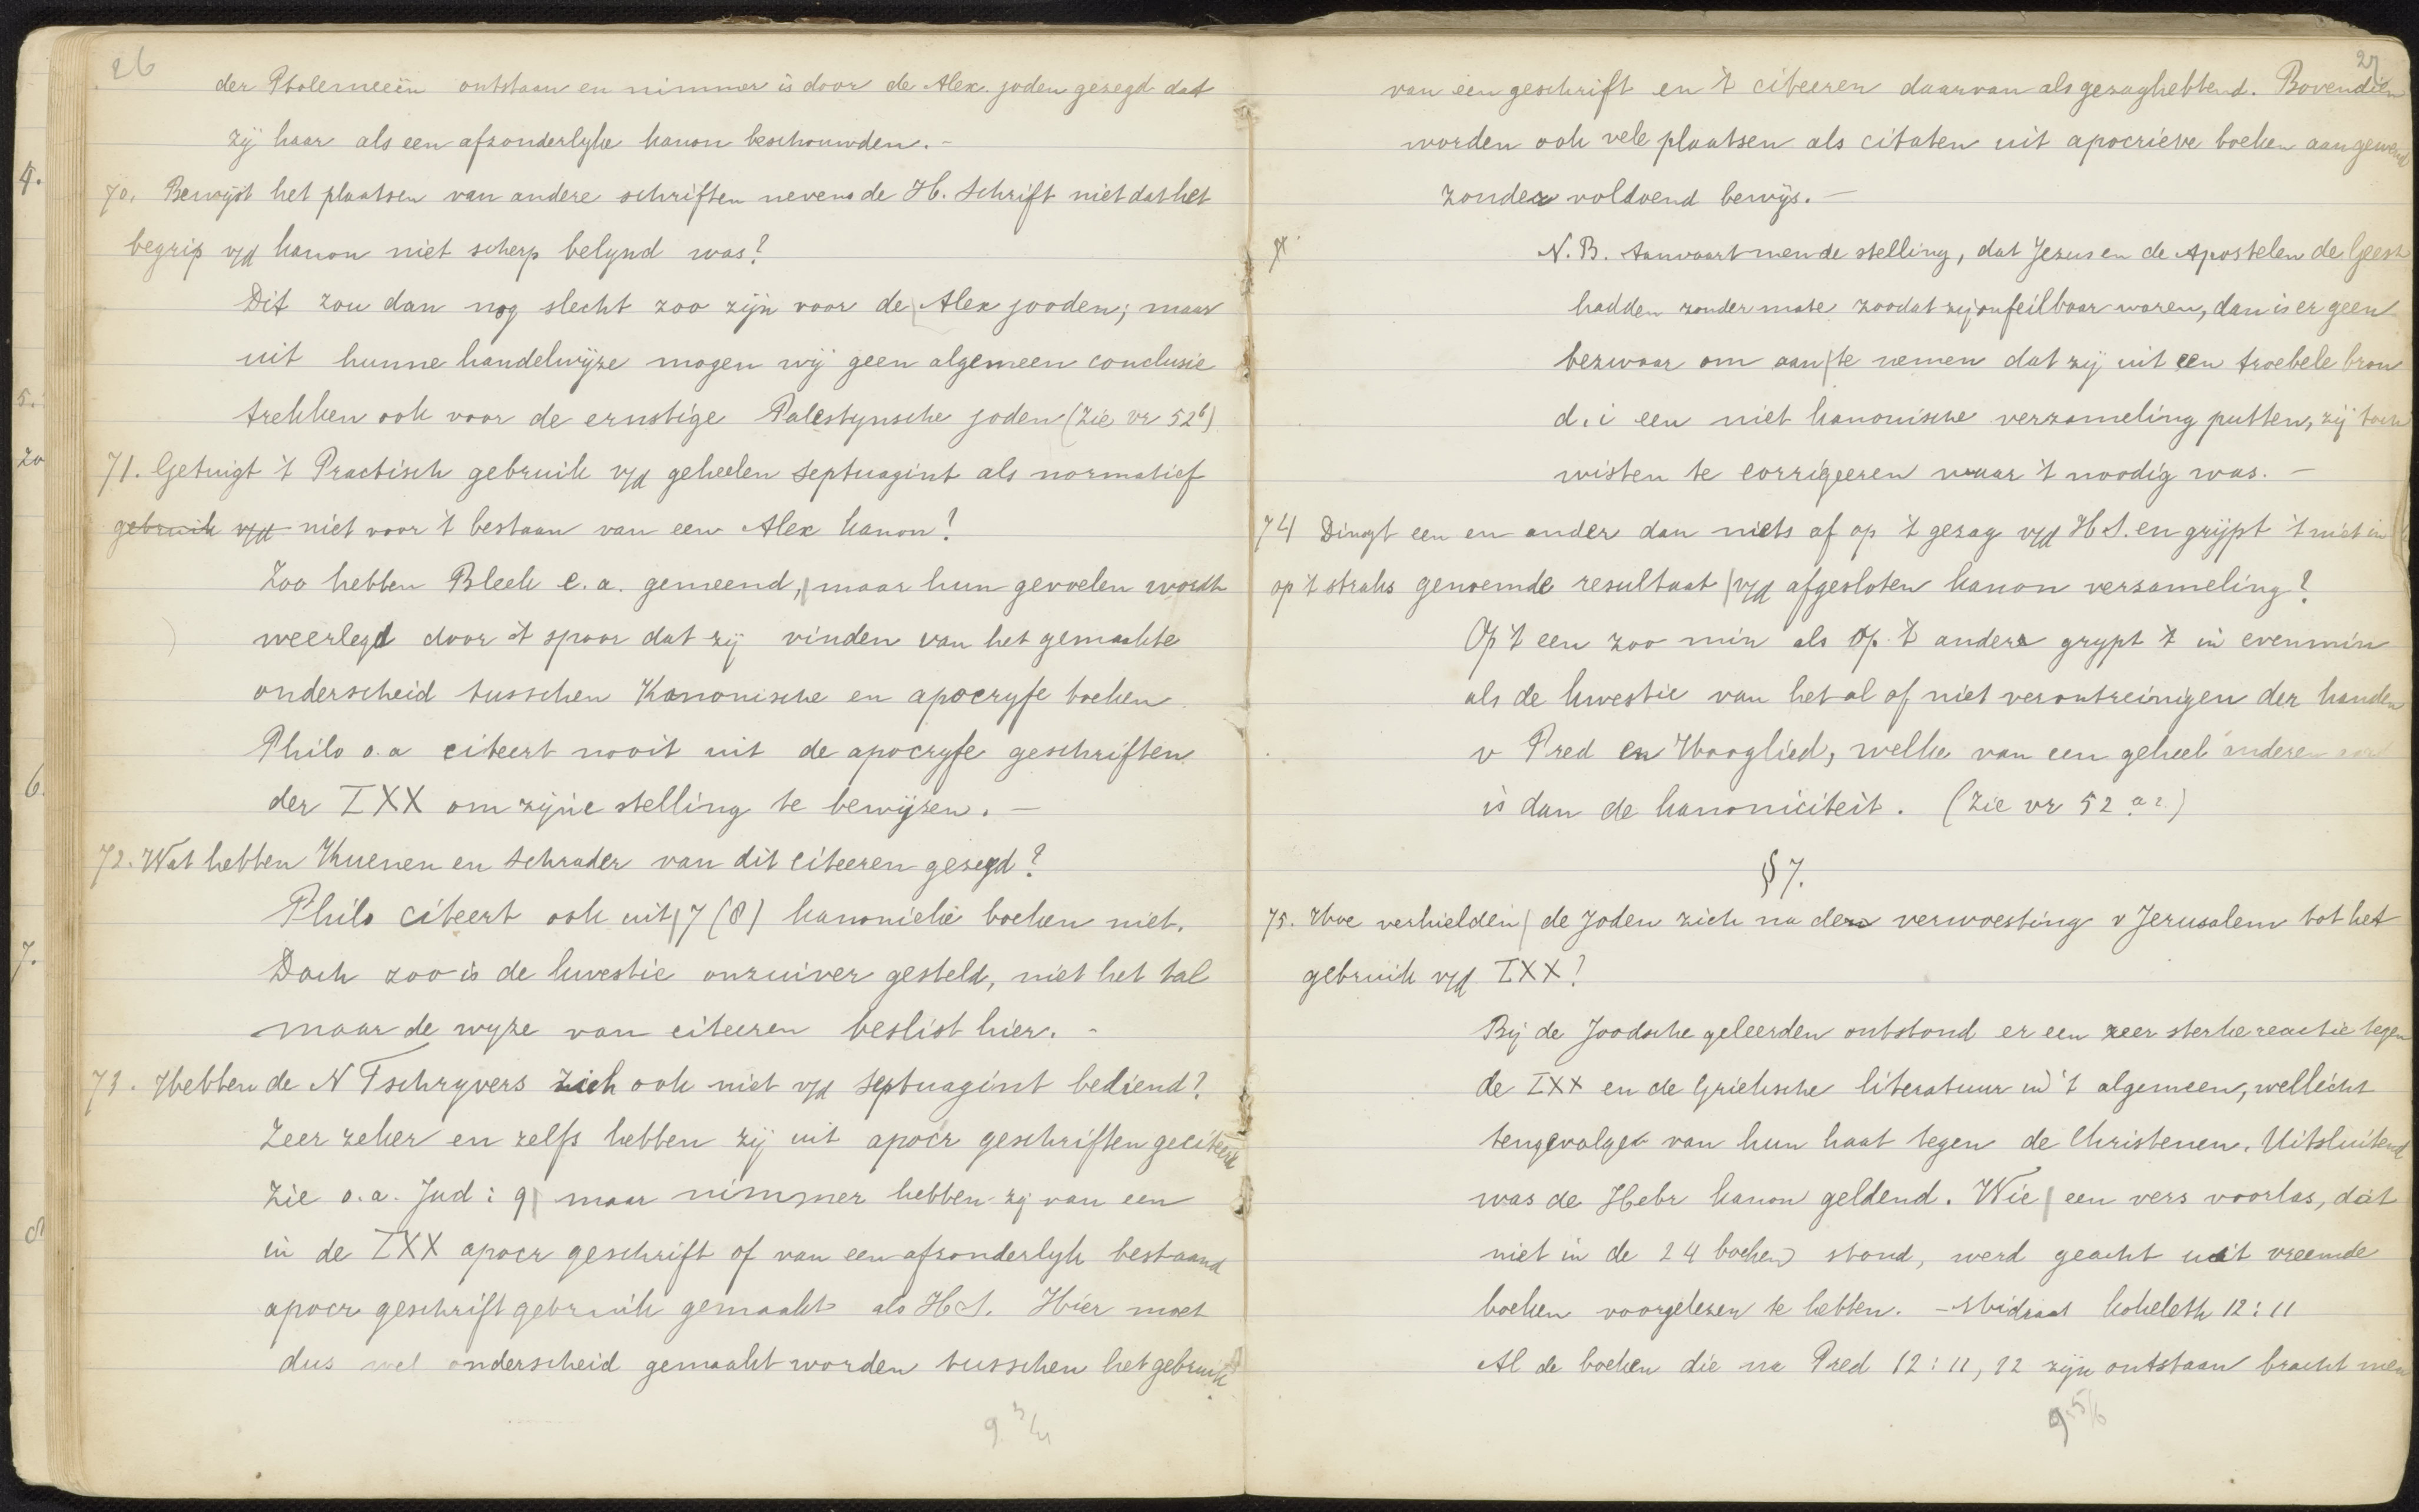 26
der Ptolemeeën ontstaan en nimmer is door de Alex. joden gezegd dat
zij haar als een afzonderlyke kanon beschouwden. -
70. Bewijst het plaatsen van andere schriften nevens de H. Schrift niet dat het
begrip v/d kanon niet scherp belynd was?
Dit zou dan nog slecht zoo zijn voor de Alex jooden; maar
uit hunne handelwijze mogen wij geen algemeen conclusie
trekken ook voor de ernstige Palestynsche joden (Zie vr 52b)
71. Getuigt 't Practisch gebruik v/d geheelen Septuagint als normatief
gebruik v/d niet voor 't bestaan van een Alex kanon?
Zoo hebben Bleek e.a. gemeend, maar hun gevoelen wordt
weerlegd door 't spoor dat zij vinden van het gemaakte
onderscheid tusschen Kanonische en apocryfe boeken
Philo o.a citeert nooit uit de apocryfe geschriften
der LXX om zijne stelling te bewijzen. -
72. Wat hebben Kuenen en Schrader van dit citeeren gezegd?
Philo citeert ook uit 7 (8) kanonieke boeken niet.
Doch zoo is de kwestie onzuiver gesteld, niet het tal
maar de wyze van citeeren beslist hier. -
73. Hebben de N Tschryvers zich ook niet v/d Septuagint bediend?
Zeer zeker en zelfs hebben zij uit apocr geschriften geciteerd
Zie o.a. Jud : 9 maar nimmer hebben zij van een
in de LXX apocr geschrift of van een afzonderlyk bestaand
apocr geschrift gebruik gemaakt als H.S. Hier moet
dus wel onderscheid gemaakt worden tusschen het gebruik
9 3/4
4.
5.
20
6.
7.
8
27
van een geschrift en 't citeeren daarvan als gezaghebbend. Bovendien
worden ook vele plaatsen als citaten uit apocrieve boeken aangewend
zonder voldoend bewijs. -
N.B. Aanvaart men de stelling, dat Jezus en de Apostelen de Geest
hadden zonder mate zoodat zij onfeilbaar waren, dan is er geen
bezwaar om aan te nemen dat zij uit een troebele bron
d.i een niet kanonische verzameling putten, zij toch
wisten te corrigeeren waar 't noodig was. -
74 Dingt een en ander dan niets af op 't gezag v/d H.S. en grijpt 't niet in
op 't straks genoemde resultaat v/d afgesloten kanon versameling?
Op 't een zoo min als op 't andere grypt 't in evenmin
als de kwestie van het al of niet verontreinigen der handen
v Pred en Hooglied, welke van een geheel anderen aard
is dan de kanoniciteit. (Zie vr 52 a 2)
§ 7.
75. Hoe verhielden de Joden zich na der verwoesting v Jerusalem tot het
gebruik v/d LXX?
Bij de Joodsche geleerden ontstond er een zeer sterke reactie tegen
de LXX en de Grieksche literatuur in 't algemeen, wellicht
tengevolge van hun haat tegen de Christenen. Uitsluitend
was de Hebr kanon geldend. Wie een vers voorlas, dat
niet in de 24 boeken stond, werd geacht uit vreemde
boeken voorgelezen te hebben. - Midrast koheleth 12:11
Al de boeken die na Pred 12:11, 12 zijn ontstaan bracht men
9 5/6